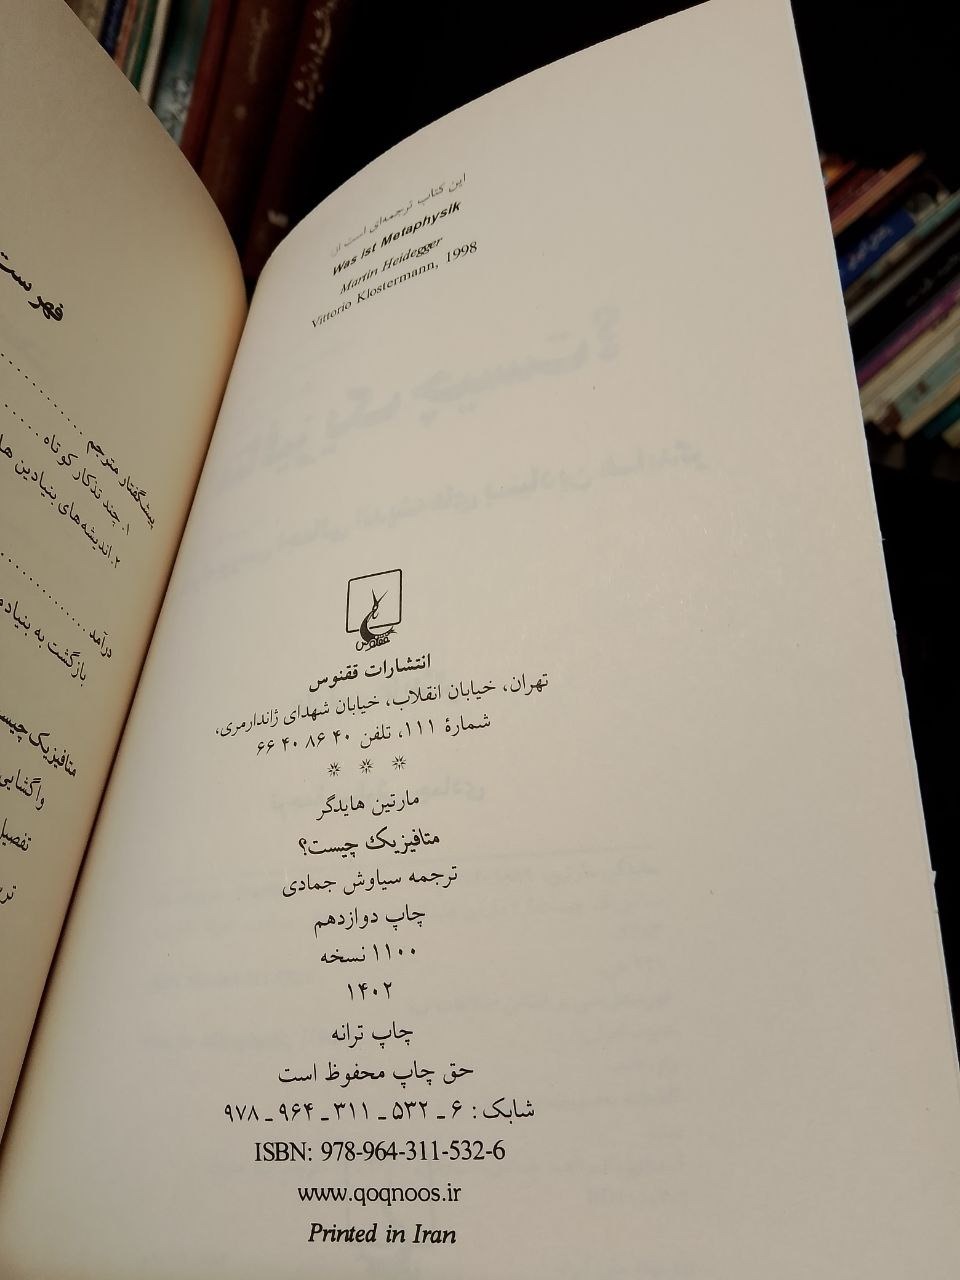 این کتاب ترجمه‌ای است از:
Was ist Metaphysik
Martin Heidegger
Vittorio Klostermann, 1998
ققنوس
انتشارات ققنوس
تهران، خیابان انقلاب، خیابان شهدای ژاندارمری،
شمارهٔ ۱۱۱، تلفن ۴۰ ۸۶ ۴۰ ۶۶
مارتین هایدگر
متافیزیک چیست؟
ترجمه سیاوش جمادی
چاپ دوازدهم
۱۱۰۰ نسخه
۱۴۰۲
چاپ ترانه
حق چاپ محفوظ است
شابک: ۶ ـ ۵۳۲ ـ ۳۱۱ ـ ۹۶۴ ـ ۹۷۸
ISBN: 978-964-311-532-6
www.qoqnoos.ir
Printed in Iran
فهرست
پیشگفتار مترجم
۱. چند تذکار کوتاه
۲. اندیشه‌های بنیادین
درآمد
بازگشت به
متافیزیک